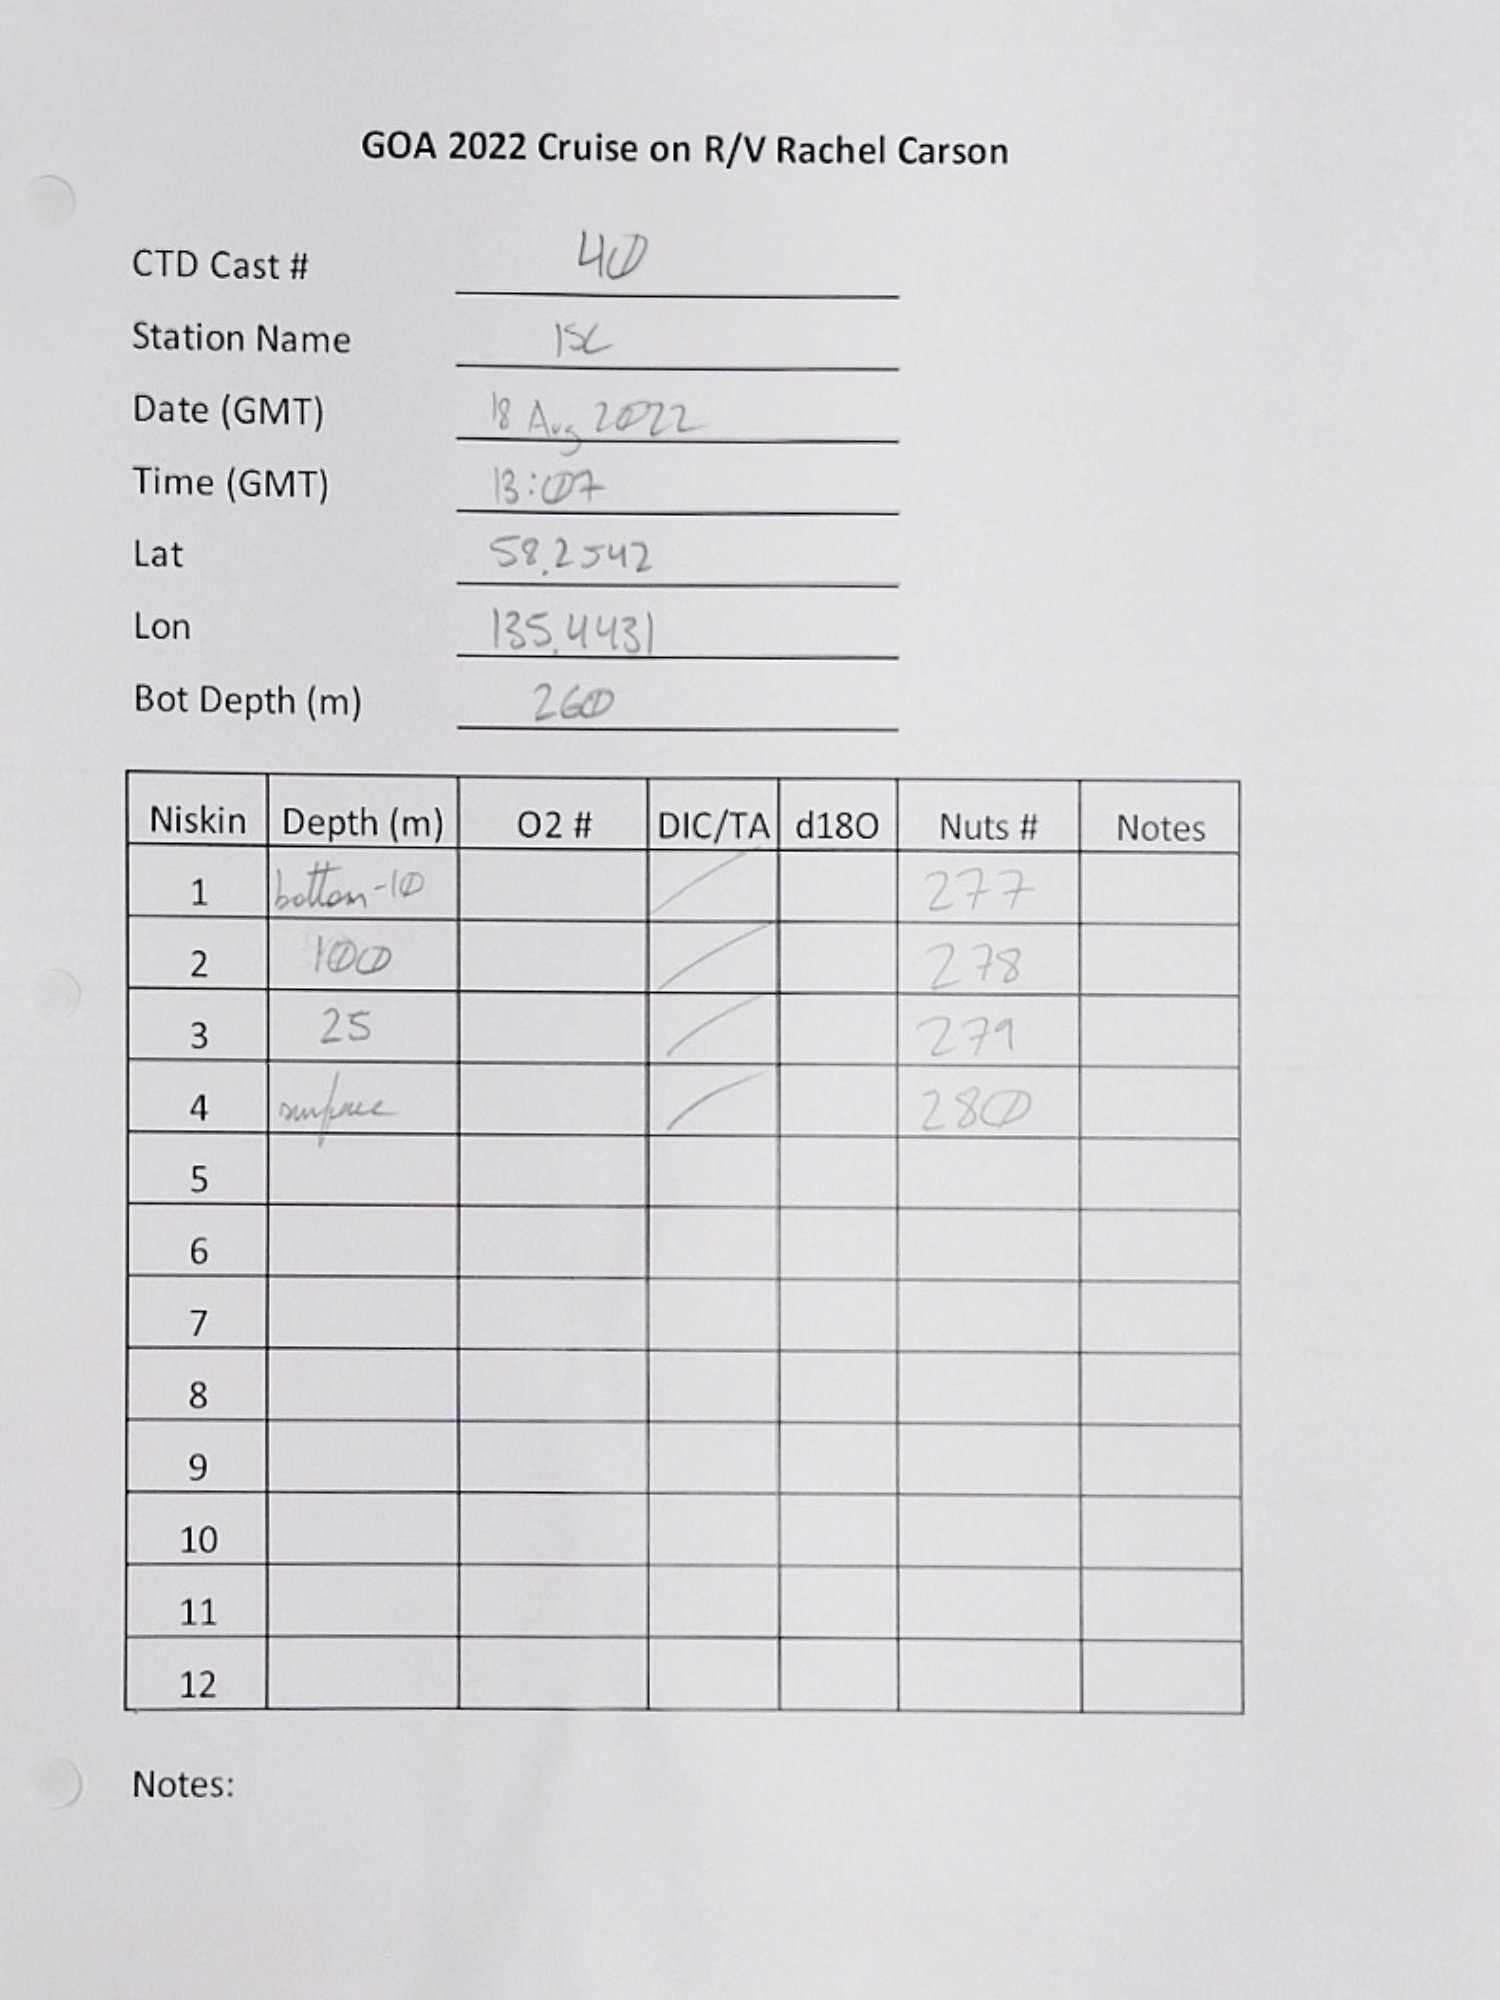 GOA 2022 Cruise on R/V Rachel Carson
CTD Cast # 40
Station Name ISC
Date (GMT) 18 Aug 2022
Time (GMT) 13:07
Lat 58.2542
Lon 135.4431
Bot Depth (m) 260
Niskin Depth (m) O2 # DIC/TA d18O Nuts # Notes
1 bottom-10 / 277
2 100 / 278
3 25 / 279
4 surface / 280
5
6
7
8
9
10
11
12
Notes: